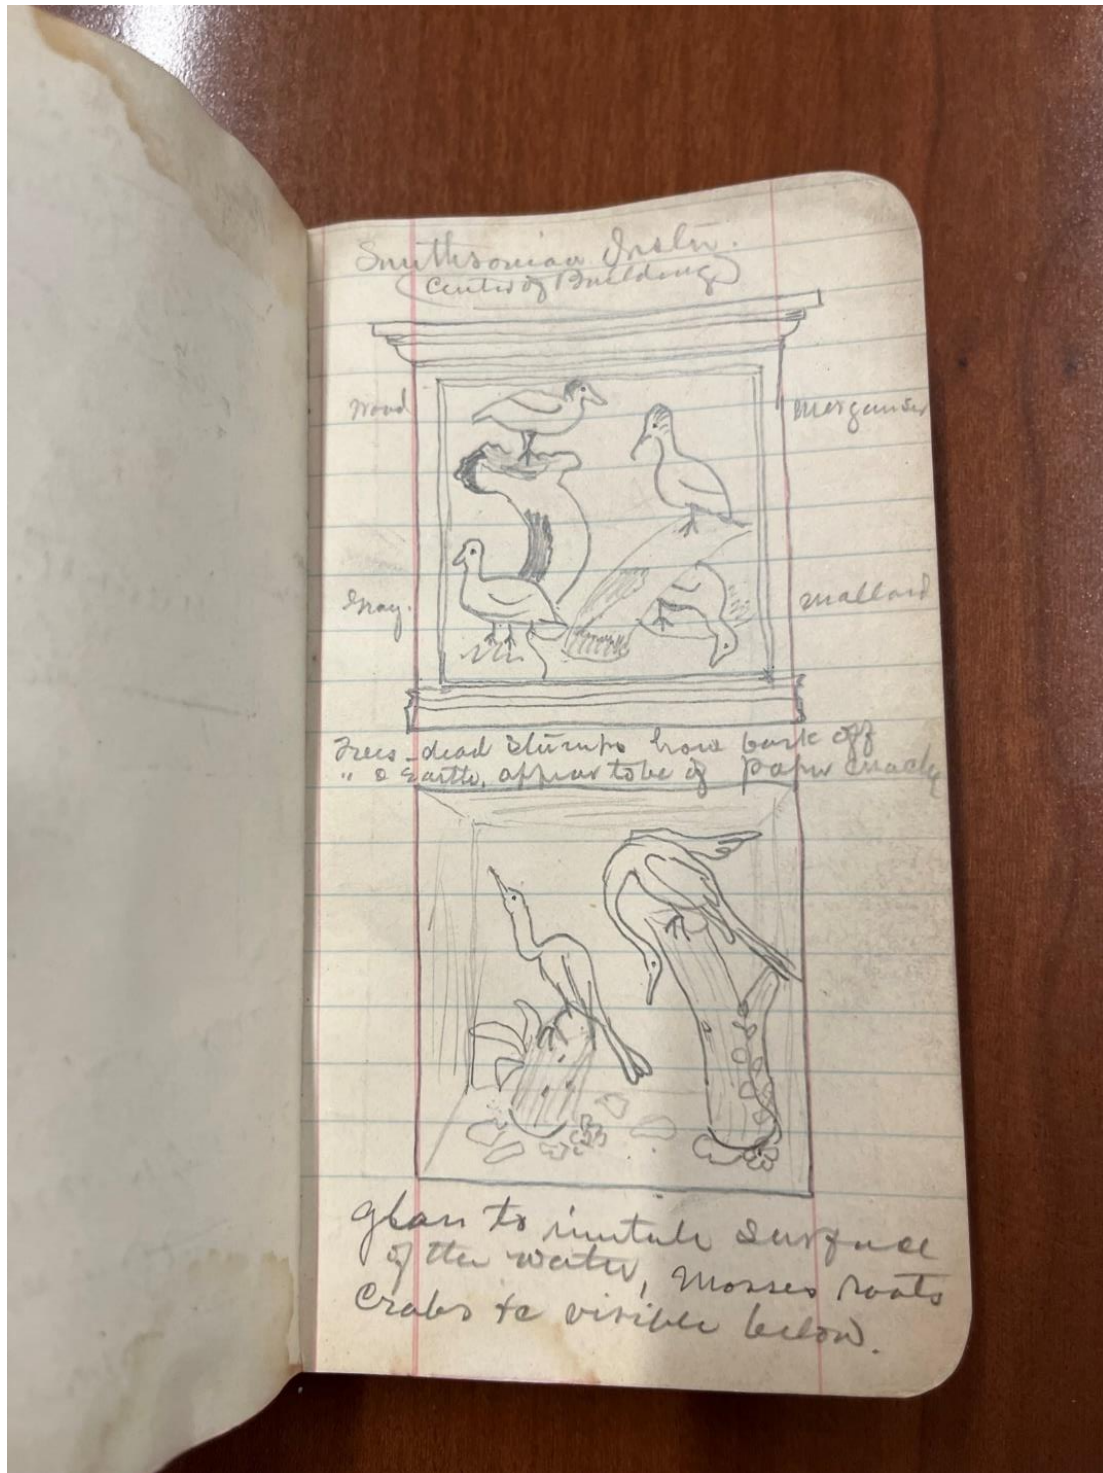 Smithsonian Instn.
(Center of Building)
Wood
Merganser
Gray.
Mallard
Trees - dead stumps have bark off
" & Earth, appear to be of paper
glass to imitate surface
of the water, mosses roots
Crabs &c visible below.